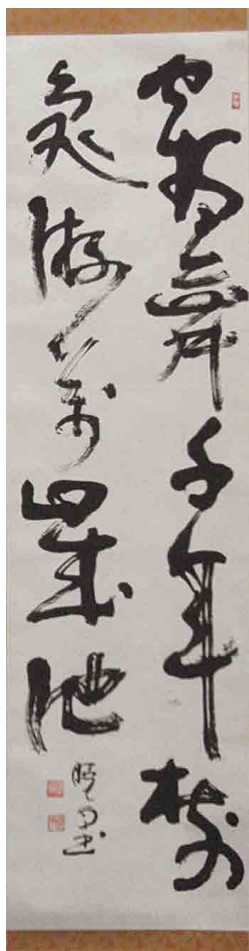 鶴舞千年樹
亀游萬歳池
書